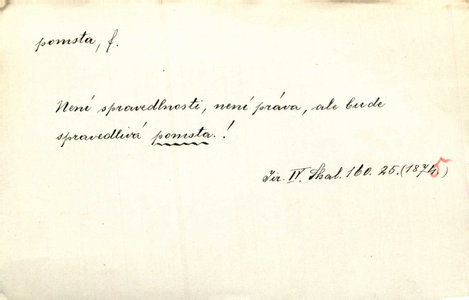 pomsta, f.
Není spravedlnosti, není práva, ale bude
spravedlivá pomsta.!
Jir. IV. Skal. 160. 25. (1875)